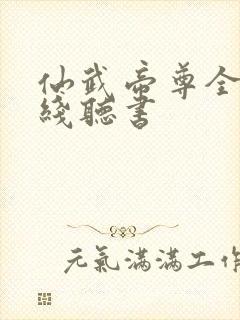 仙武帝尊全
綫聽書
元氣滿滿工作